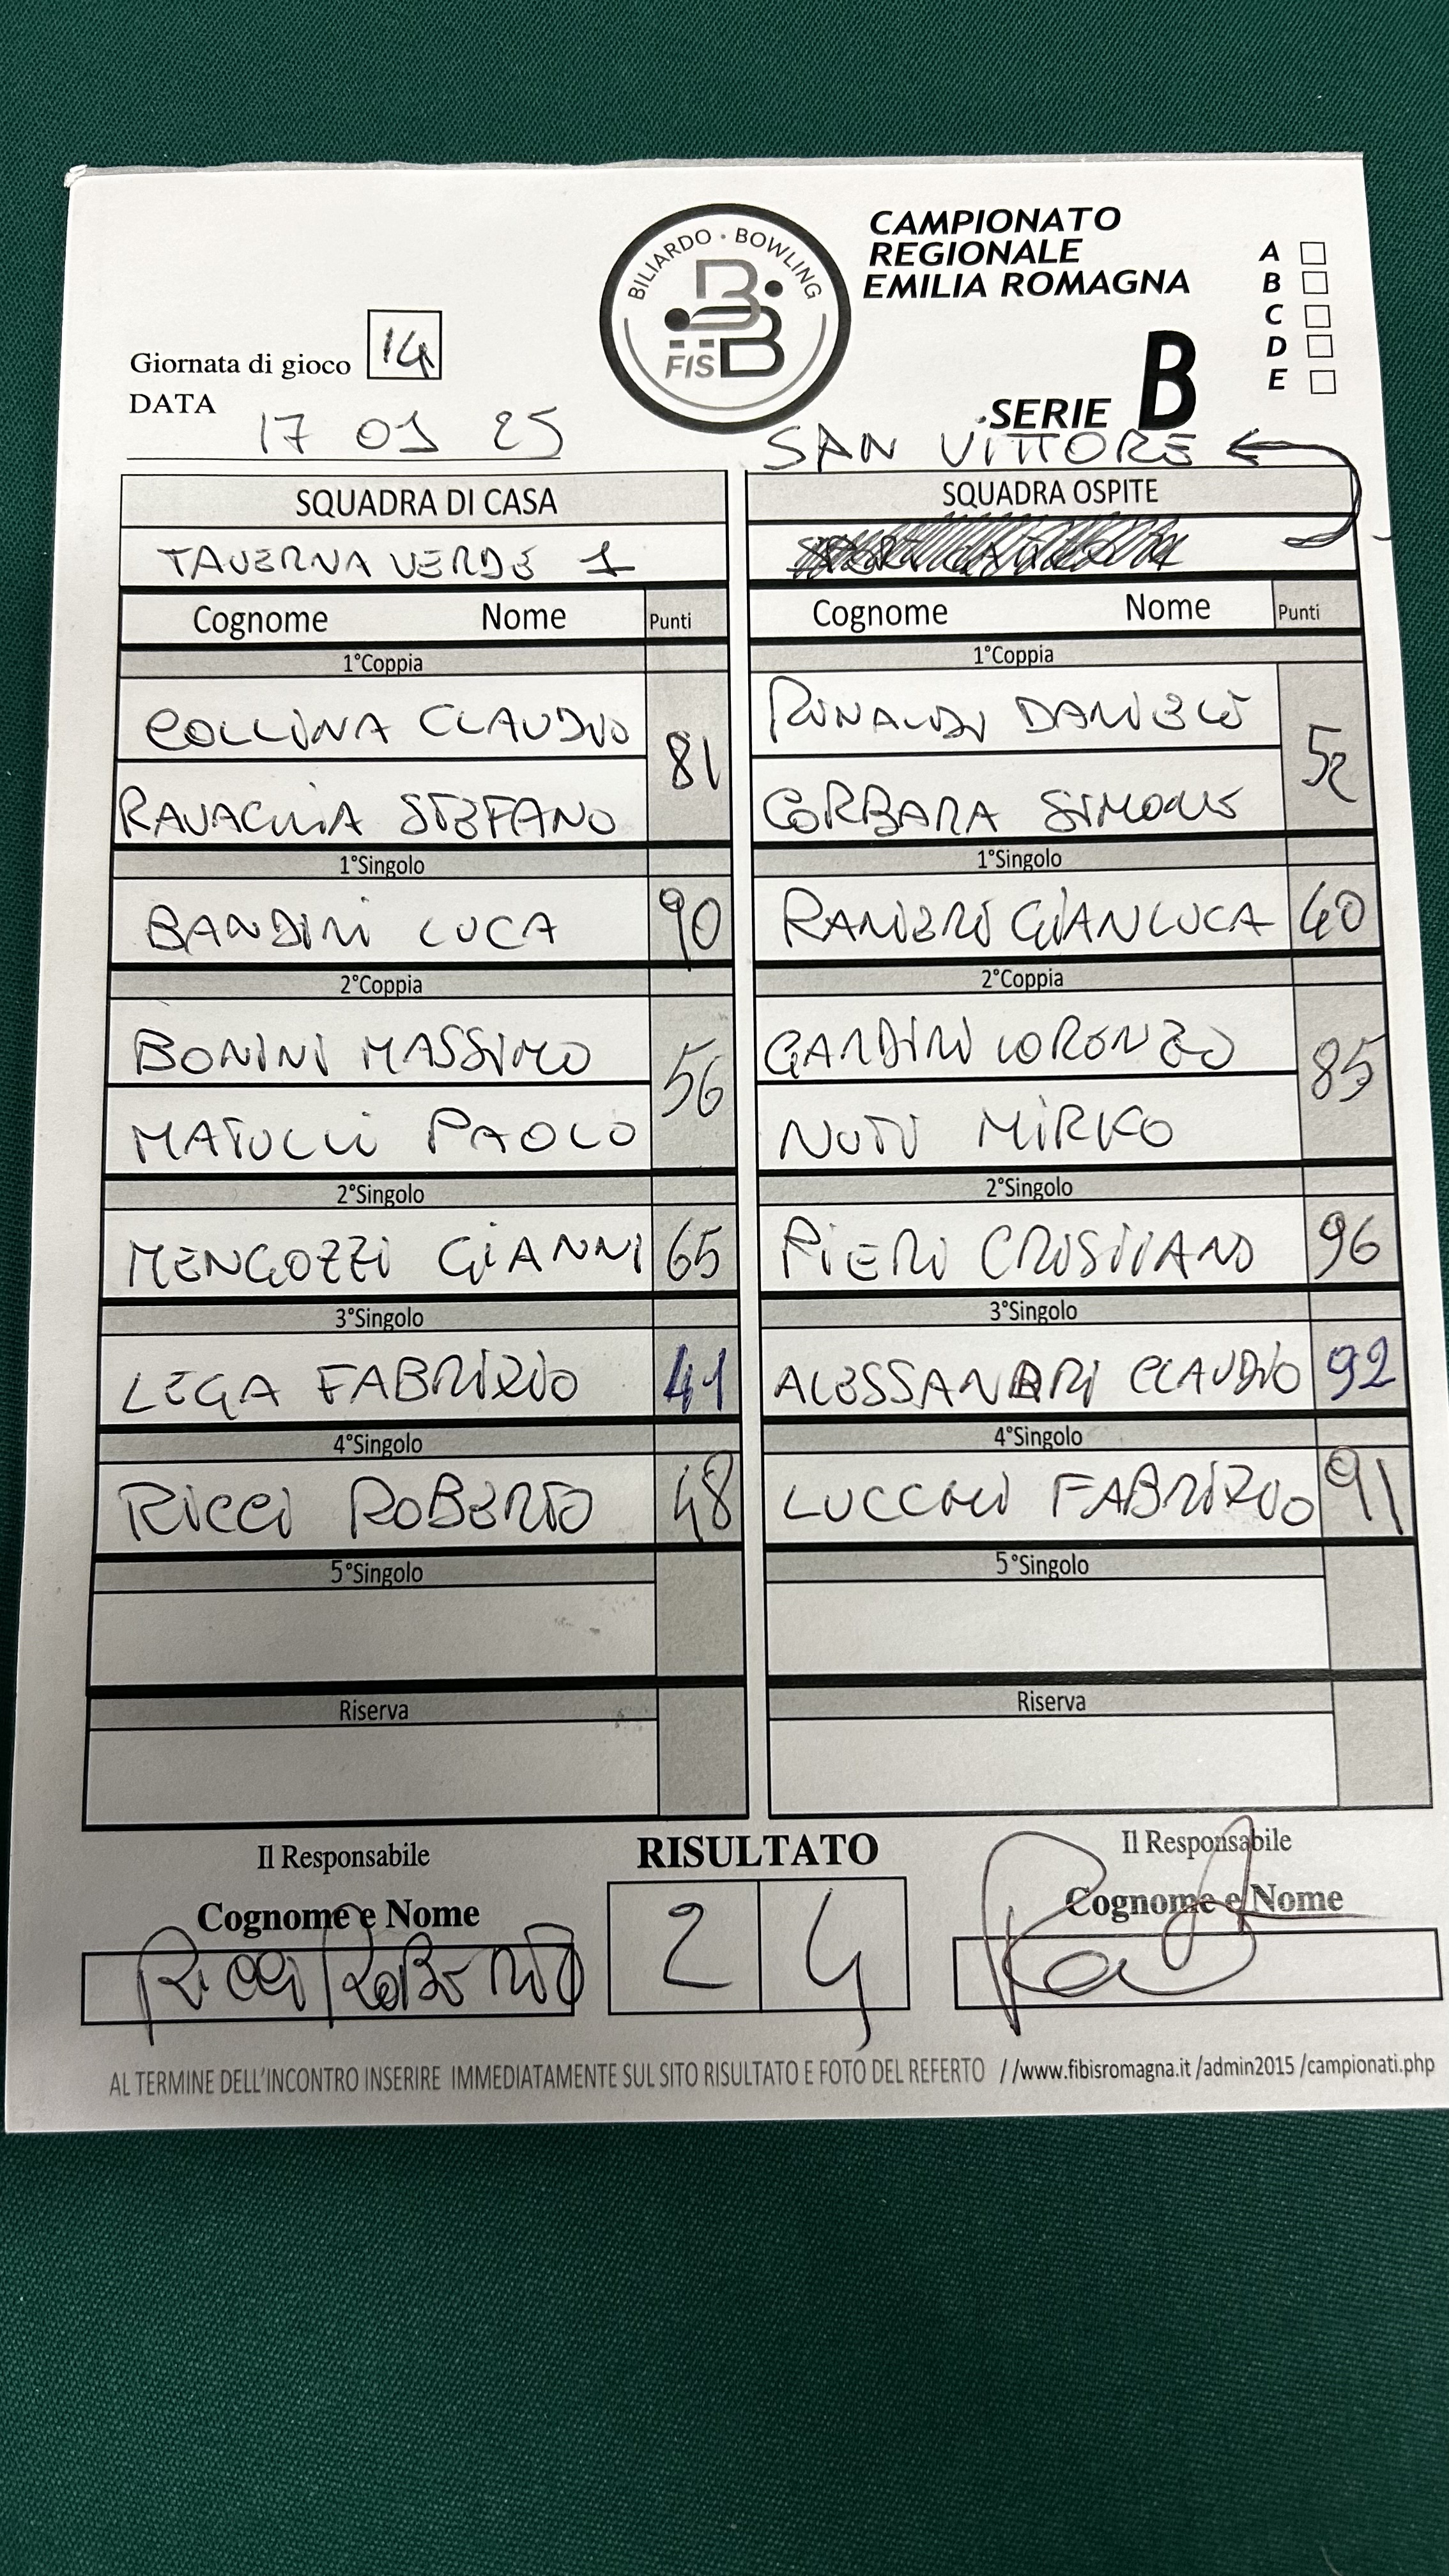 BILIARDO · BOWLING
FISBB
CAMPIONATO
REGIONALE
EMILIA ROMAGNA
A
B
C
D
E
SERIE B
Giornata di gioco 14
DATA
17 01 25
SAN VITTORE
SQUADRA DI CASA SQUADRA OSPITE
TAVERNA VERDE 1
Cognome Nome Punti Cognome Nome Punti
1°Coppia 1°Coppia
COLLINA CLAUDIO RINALDI DANIELE
81 52
RAVAGLIA STEFANO CORBARA SIMONE
1°Singolo 1°Singolo
BANDINI LUCA 90 RANIERI GIANLUCA 40
2°Coppia 2°Coppia
BONINI MASSIMO GARDINI LORENZO
56 85
MATULLI PAOLO NUTI MIRKO
2°Singolo 2°Singolo
MENGOZZI GIANNI 65 PIERI CRISTIANO 96
3°Singolo 3°Singolo
LEGA FABRIZIO 41 ALESSANDRI CLAUDIO 92
4°Singolo 4°Singolo
RICCI ROBERTO 48 LUCCHI FABRIZIO 91
5°Singolo 5°Singolo
Riserva Riserva
Il Responsabile RISULTATO Il Responsabile
Cognome e Nome Cognome e Nome
Ricci Roberto 2 4
AL TERMINE DELL'INCONTRO INSERIRE IMMEDIATAMENTE SUL SITO RISULTATO E FOTO DEL REFERTO //www.fibisromagna.it /admin2015 /campionati.php